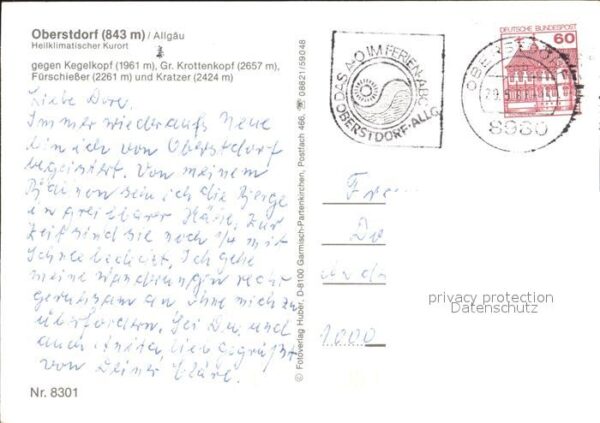 Oberstdorf (843 m) / Allgäu
Heilklimatischer Kurort
gegen Kegelkopf (1961 m), Gr. Krottenkopf (2657 m),
Fürschießer (2261 m) und Kratzer (2424 m)
Liebe Dore,
Immer wieder aufs Neue
bin ich von Oberstdorf
begeistert. Von meinem
die Berge
in greifbarer Nähe. Zur
Zeit sind sie noch 3/4 mit
Schnee bedeckt. Ich gehe
meine Wanderungen recht
geruhsam an ohne mich zu
überfordern. Sei Du und
auch Anita, lieb gegrüßt
von Deiner Kläre.
Nr. 8301
© Fotoverlag Huber, D-8100 Garmisch-Partenkirchen, Postfach 466, ☎ 08821/59048
DAS A-O IM FERIEN-ABC
OBERSTDORF-ALLG
OBERSTDORF
8980
DEUTSCHE BUNDESPOST
60
1000
privacy protection
Datenschutz